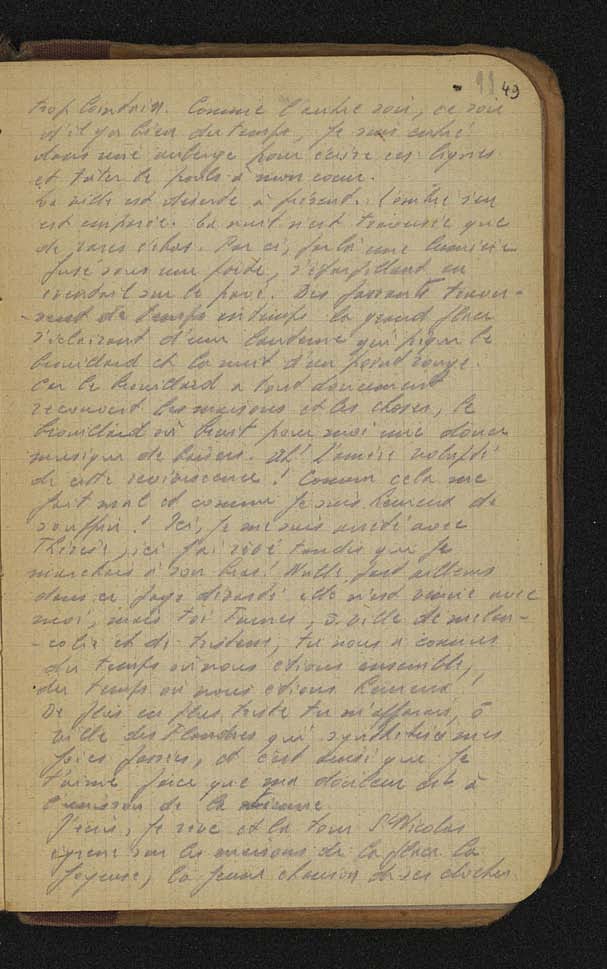 49
trop lointain. Comme l'autre soir, ce soir
d'il y a bien du temps, je suis entré
dans une auberge pour écrire ces lignes
et tâter le pouls à mon coeur.
La ville est déserte à présent. L'ombre s'en
est emparée. La nuit n'est traversée que
de rares échos. Par ci, par là une lumière
fuse sous une porte, s'éparpillant en
éventail sur le pavé. Des passants traver-
-sent de temps en temps la grand place
s'éclairant d'une lanterne qui pique le
brouillard et la nuit d'un point rouge.
Car le brouillard a tout doucement
recouvert les maisons et les choses, le
brouillard où bruit pour moi une douce
musique de baisers. Ah! L'amère volupté
de cette reviviscence! Comme cela me
fait mal et comme je suis heureux de
souffrir! Ici, je me suis arrêté avec
Thérèse, ici j'ai rêvé tandis que je
marchais à son bras! Nulle part ailleurs
dans ce pays dévasté elle n'est venue avec
moi, mais toi Furnes, ô ville de mélan-
-colie et de tristesse, tu nous a connus
du temps où nous étions ensemble,
du temps où nous étions heureux!
De plus en plus triste tu m'apparais, ô
ville des Flandres qui synthétise mes
joies passées, et c'est ainsi que je
t'aime parce que ma douleur est à
l'unisson de la tienne.
J'écris, je rêve et la tour St Nicolas
égrène sur les maisons de la place la
joyeuse, la jeune chanson de ses cloches.